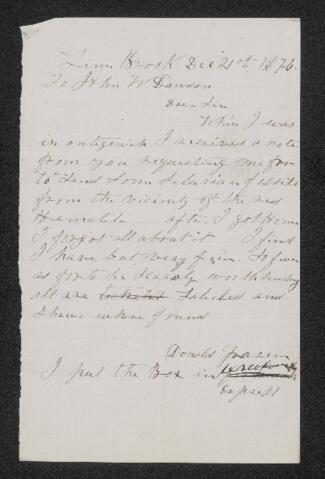 Linn Brook Dec 21st 1876
To John W Dawson
Dear Sir
When I was
in antigonish I received a note
from you requesting me for
to Send Some Silurian fossils
from the vicinity of the red
Hematite after I got Home
I forgot all about it I find
I have but very few. So few
as for to be Scarcly worth Sending
all are labeled and
Shews where found
Donald Frazer
I put the Box in
Express